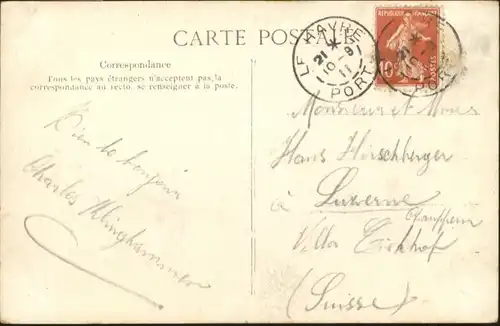 CARTE POSTALE
Correspondance
Tous les pays étrangers n'acceptent pas la
correspondance au recto. se renseigner à la poste.
LE HAVRE
21 *
10-9
11
PORT
REPUBLIQUE FRANÇAISE
10
POSTES
Monsieur et
Hans Hirschberger
à Luzerne
Villa Eichhof
(Suisse)
Bien le bonjour
Charles Klinghammer